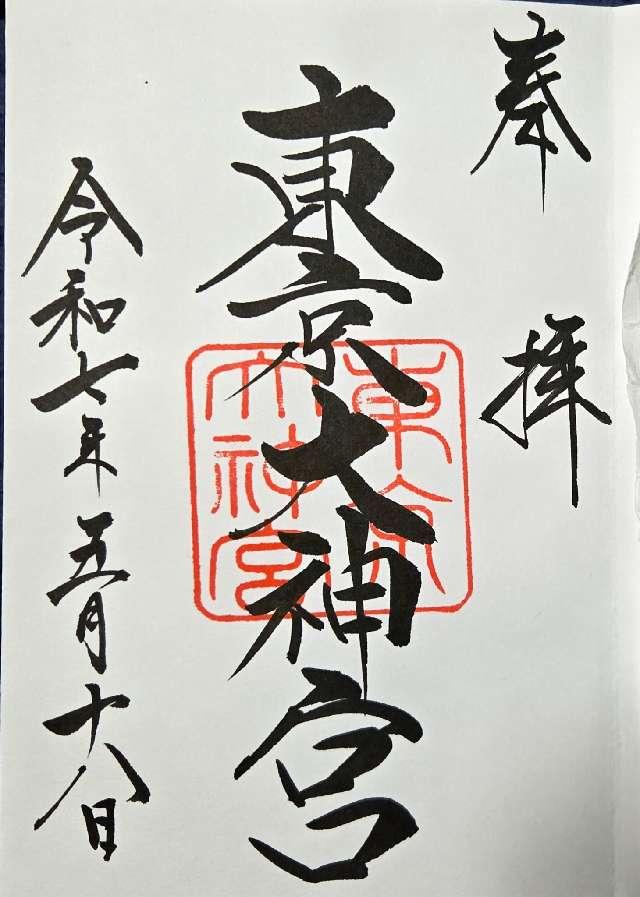 奉拝
東京大神宮
東京大神宮
令和七年五月十八日